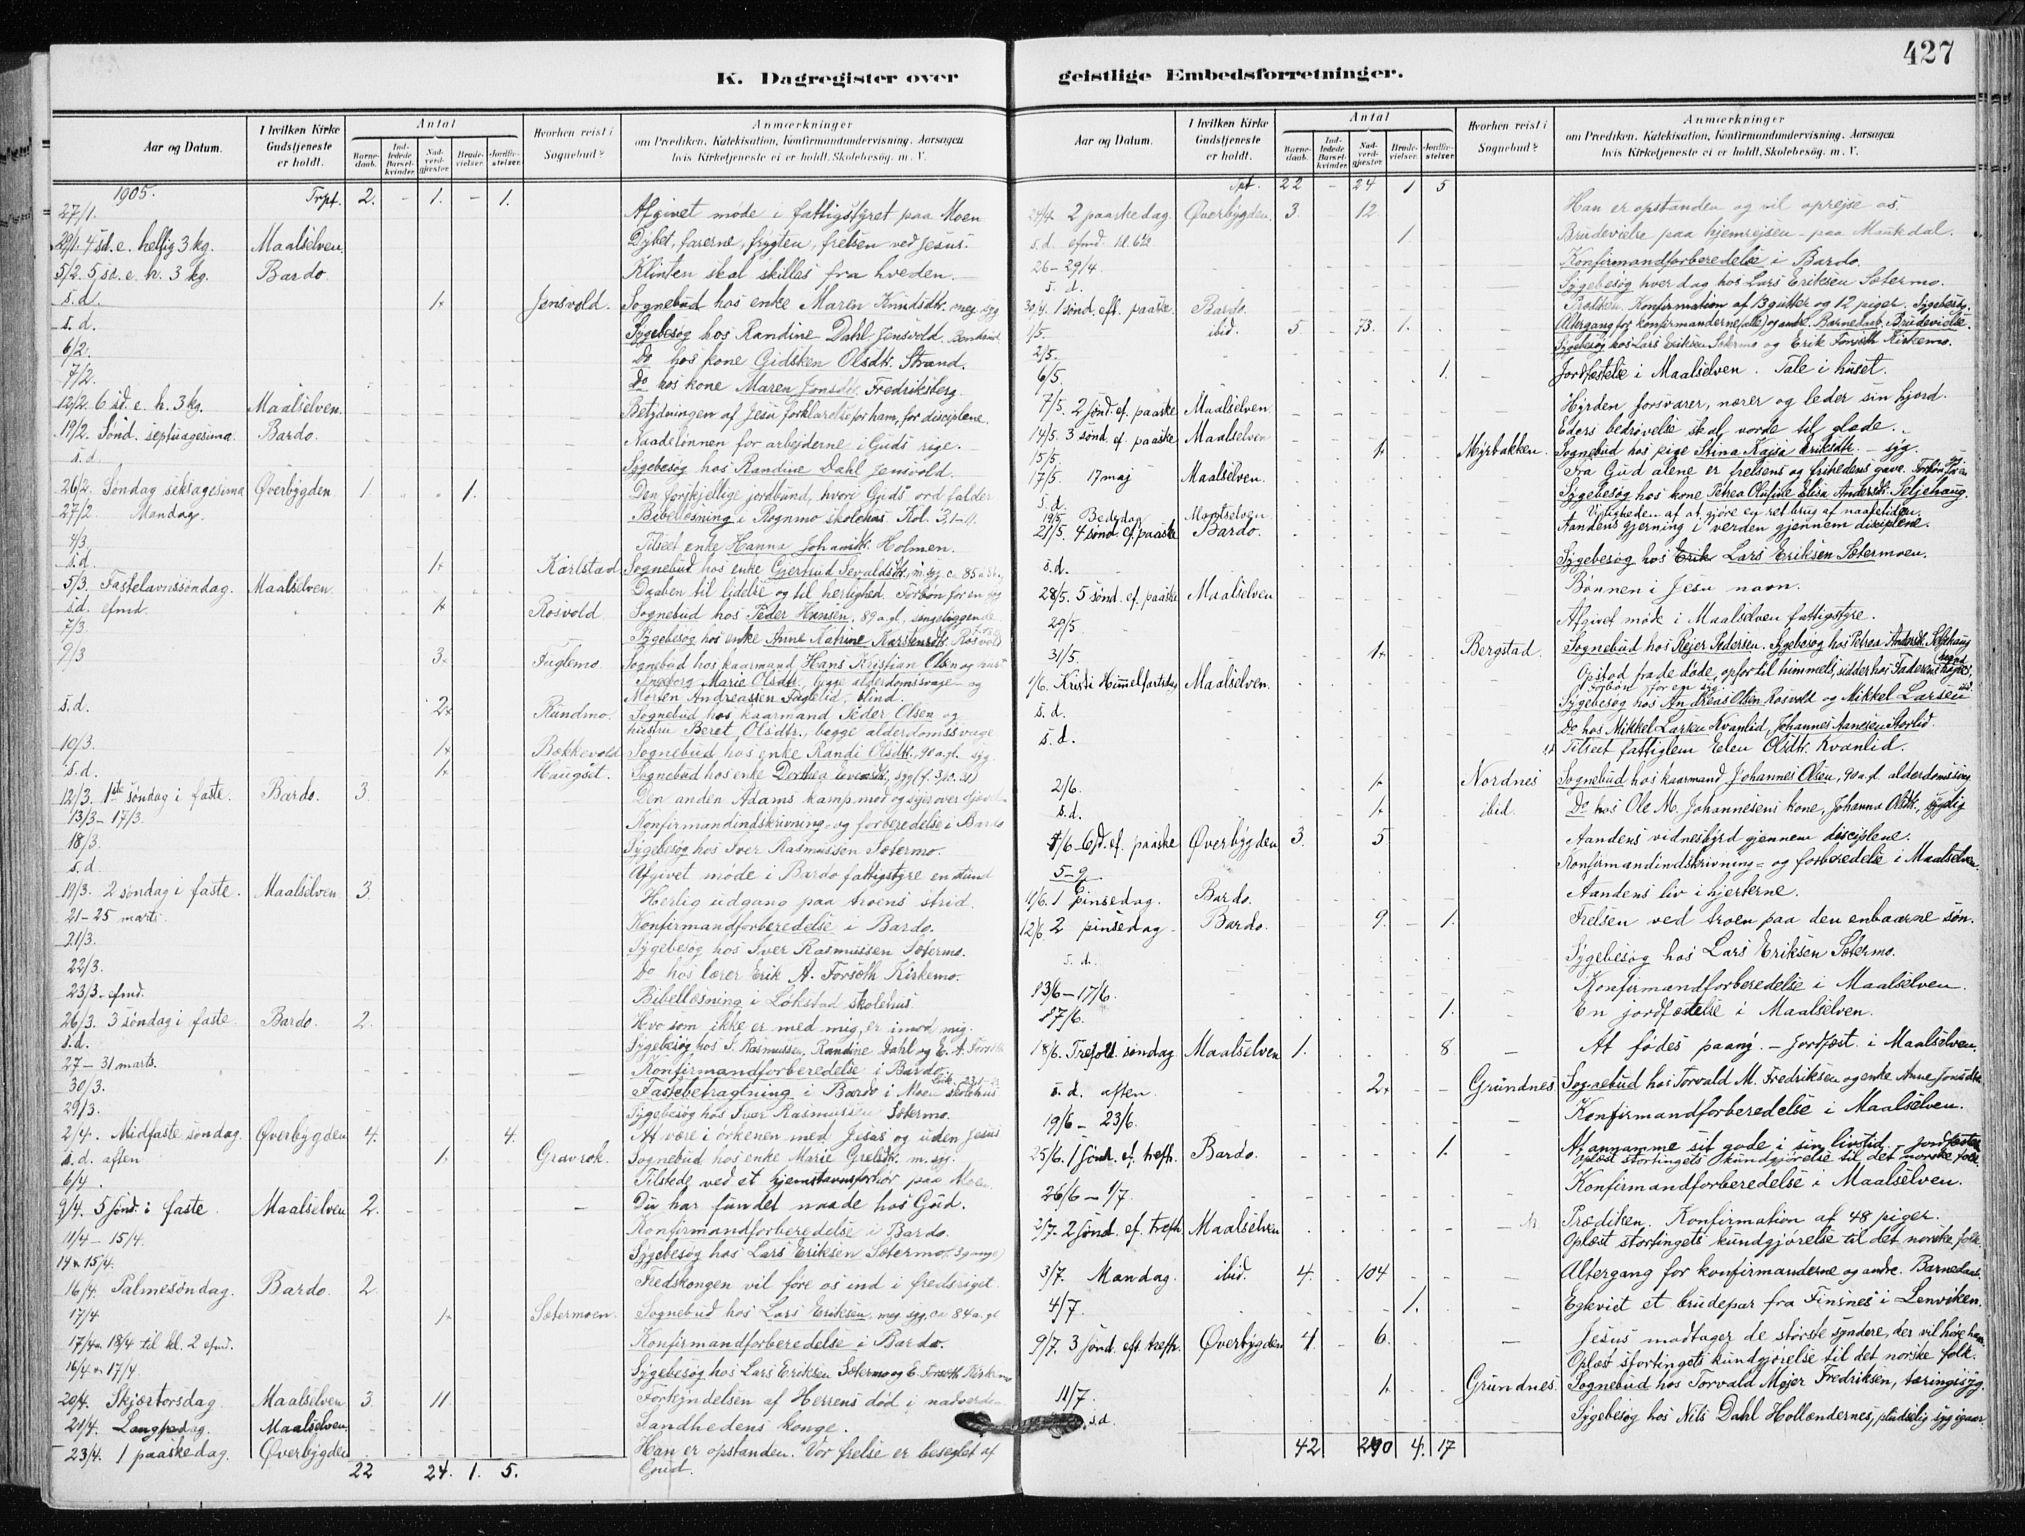 427
K. Dagregister over geistlige Embedsforretninger.
Aar og Datum. I hvilken Kirke Gudstjeneste er holdt. Antal Barnedaab. Indledede Barselkvinder. Nadverdgjæster. Brudevielser. Jordfæstelser. Hvorhen reist i Sognebud? Anmærkninger om Prædiken, Katekisation, Konfirmandundervisning, Aarsagen hvis Kirketjeneste ei er holdt, Skolebesøg. m. V.
1905. Trpt. 2. - 1. - 1.
27/1. Afgivet møde i fattigstyret paa Moen
29/1. 4 sd. e. hellig 3 kg. Maalselven. Dybet, farerne, frygten, frelsen ved Jesus.
5/2. 5 sd. e. h. 3 kg. Bardo. Klinten skal skilles fra hveden.
s. d. 1+ Jensvold. Sognebud hos enke Maren Knudsdtr. meg. syg
s. d. Sygebesøg hos Randine Dahl Jensvold.
6/2. Do hos kone Gidsken Olsdtr. Strand.
7/2. Do hos kone Maren Jonsdtr. Fredriksberg.
12/2. 6 sd. e. h. 3 kg. Maalselven. Betydningen af Jesu forklarelse for ham, for disciplene.
19/2. Sønd. septuagesima. Bardo. Naadelønnen for arbejderne i Guds rige.
s. d. Sygebesøg hos Randine Dahl Jensvold.
26/2. Søndag seksagesima Øverbygden 1. 1. Den forskjellige jordbund, hvori Guds ord falder
27/2. Mandag. Bibellæsning i Rognmo skolehus. Kol. 3,1-4.
4/3 Tilseet enke Hanna Johansdtr. Holmen.
s. d. 1+ Karlstad Sognebud hos enke Gjertrud Sevaldsdtr., m. syg, ca 85 a.
5/3. Fastelavnssøndag. Maalselven. Daaben til lidelse og til herlighed. Forbøn for en syg
s. d. efmd. 1+ Rosvold Sognebud hos Peder Hansen, 89 a. gl., sengeliggende
7/3. Sygebesøg hos enke Anne Katrine Karstensdtr. Rosvold
9/3 3+ Fuglemo. Sognebud hos kaarmand Hans Kristian Olsen og hust.
Ingeborg Marie Olsdtr. begge alderdomssvage og
Morten Andreassen Fuglelid, blind.
s. d. 2+ Rundmo. Sognebud hos kaarmand Peder Olsen og
hustru Beret Olsdtr., begge alderdomssvage
10/3. 1+ Bakkevold Sognebud hos enke Randi Olsdtr., 90 a. gl. syg.
s. d. 1+ Haugset. Sognebud hos enke Dorthea Iversdtr., syg
12/3. 1ste søndag i faste. Bardo. 3. Den anden Adams kamp mod og sejer over djævel
13/3 - 17/3. Konfirmandindskrivning og forberedelse i Bardo
18/3. Sygebesøg hos Iver Rasmussen Sætermo.
s. d. Afgivet møde i Bardo fattigstyre en stund
19/3. 2 søndag i faste. Maalselven 3. Herlig udgang paa troens strid.
21-25 marts. Konfirmandforberedelse i Bardo.
21/3. Sygebesøg hos Iver Rasmussen Sætermo.
22/3. Do hos lærer Erik A. Forseth Kirkemo.
23/3. efmd. Bibellæsning i Løkstad skolehus
26/3. 3 søndag i faste. Bardo. 2. Hvo som ikke er med mig, er imod mig.
s. d. Sygebesøg hos I. Rasmussen, Randine Dahl og E. A. Forseth
27 - 31 marts. Konfirmandforberedelse i Bardo.
30/3. Fastebetragtning i Bardo i Moen skolehus
29/3. Sygebesøg hos Iver Rasmussen Sætermo.
2/4. Midfaste søndag. Øverbygden 4. 4. At være i ørkenen med Jesus og uden Jesus
s. d. aften. 1+ Gravrok. Sognebud hos enke Marie Grelsdtr. m. syg.
6/4. Tilstede ved et hjemstavnsforhør paa Moen.
9/4. 5 sønd. i faste. Maalselven 2. Du har fundet naade hos Gud.
11/4 - 15/4. Konfirmandforberedelse i Bardo.
14 & 15/4. Sygebesøg hos Lars Eriksen Sætermo (3 gange)
16/4. Palmesøndag. Bardo. 2. Fredskongen vil føre os ind i fredsriget.
17/4 1+ Sætermoen. Sognebud hos Lars Eriksen, meg. syg, ca 84 a. gl
17/4 & 18/4 til kl. 2 efmd. Konfirmandforberedelse i Bardo.
16/4 & 17/4. Sygebesøg hos Lars Eriksen Sætermo og E. Forseth Kirkemo
20/4. Skjærtorsdag Maalselven 3. 11. Forkyndelsen af Herrens død i nadverden
21/4. Langfredag. Maalselven. Sandhedens konge.
23/4. 1 paaskedag. Øverbygden Han er opstanden. Vor frelse er beseglet af
22 24. 1. 5. Gud.
Aar og Datum. I hvilken Kirke Gudstjeneste er holdt. Antal Barnedaab. Indledede Barselkvinder. Nadverdgjæster. Brudevielser. Jordfæstelser. Hvorhen reist i Sognebud? Anmærkninger om Prædiken, Katekisation, Konfirmandundervisning, Aarsagen hvis Kirketjeneste ei er holdt, Skolebesøg. m. V.
Tpt. 22 - 24 1 5
24/4. 2 paaskedag. Øverbygden. 3. - 12. Han er opstanden og vil oprejse os.
s. d. efmd. kl. 6 1/2 1. Brudevielse paa hjemrejsen - paa Maukdal.
26 - 29/4. Konfirmandforberedelse i Bardo.
s. d. Sygebesøg hver dag hos Lars Eriksen Sætermo.
30/4. 1 sønd. eft. paaske. Bardo. Prædiken. Konfirmation af 13 gutter og 12 piger. Sygebesøg.
1/5. ibid. 5 - 73. 1. Altergang for konfirmanderne (alle) og andre. Barnedaab. Brudevielse.
2/5. Sygebesøg hos Lars Eriksen Sætermo og Erik Forseth Kirkemo.
6/5. 1. Jordfæstelse i Maalselven. Tale i huset.
7/5. 2 sønd. ef. paaske Maalselven. Hyrden forsvarer, nærer og leder sin hjord.
14/5. 3 sønd. ef. paaske Maalselven Eders bedrøvelse skal vorde til glæde.
15/5. 1+ Myrbakken. Sognebud hos pige Stina Kajsa Eriksdtr. - syg.
17/5. 17 maj Maalselven. Fra Gud alene er frelsens og frihedens gave. Forbøn for en syg
s. d. Sygebesøg hos kone Petrea Olufine Elisa Andersdtr. Seljehaug.
19/5. Bededag Maalselven Vigtigheden af at gjøre en ret brug af naadetiden.
21/5. 4 sønd. ef. paaske Bardo. Aandens gjerning i verden gjennem disciplene.
s. d. Sygebesøg hos Erik Lars Eriksen Sætermoen.
28/5. 5 sønd. ef. paaske Maalselven Bønnen i Jesu navn.
29/5 Afgivet møde i Maalselven fattigstyre.
31/5. 1+ Bergstad. Sognebud hos Rejer Pedersen. Sygebesøg hos Petrea Andersdtr. Seljehaug
1/6. Kristi Himmelfartsdag Maalselven. Opstod fra de døde, opfor til himmels, sidder hos Faderens højre haand.
Forbøn for en syg.
s. d. Sygebesøg hos Andreas Olsen Rosvold og Mikkel Larsen
s. d. Do hos Mikkel Larsen Kvanlid, Johannes Aanesen Storlid
Tilseet fattiglem Elen Olsdtr. Kvanlid.
2/6. 1+ Nordnes Sognebud hos kaarmand Johannes Olsen, 90 a. gl. alderdomssvag.
s. d. 1+ ibid. Do hos Ole M. Johannesens kone, Johanna Olsdtr., sygelig
4/6. 6 sd. ef. paaske Øverbygden 3. 5. Aandens vidnesbyrd gjennem disciplene.
5-9/6 Konfirmandindskrivning- og forberedelse i Maalselven.
11/6. 1 pinsedag. Bardo. Aandens liv i hjerterne.
12/6. 2 pinsedag Bardo. 9. 1. Frelsen ved troen paa den enbaarne søn.
s. d. Sygebesøg hos Lars Eriksen Sætermo.
13/6 - 17/6. Konfirmandforberedelse i Maalselven.
17/6. 1. En jordfæstelse i Maalselven.
18/6. Trefold. søndag Maalselven 1. 8 At fødes paany. - Jordfæst. i Maalselven.
s. d. aften. 2+ Grundnes Sognebud hos Torvald M. Fredriksen og enke Anne Jonsdtr.
19/6 - 23/6. Konfirmandforberedelse i Maalselven.
25/6. 1 sønd. ef. trefh. Bardo. 1. At annamme sit gode i sin livstid. - Jordfæstelse
Oplæst stortingets kundgjørelse til det norske folk.
26/6 - 1/7. Konfirmandforberedelse i Maalselven.
2/7. 2 sønd. ef. trefh. Maalselven Prædiken. Konfirmation af 48 piger.
Oplæst stortingets kundgjørelse til det norske folk.
3/7. Mandag. ibid. 4. 104 Altergang for konfirmanderne og andre. Barnedaab.
4/7. 1. Egteviet et brudepar fra Finsnes i Lenviken.
9/7. 3 sønd. eft. trefh. Øverbygden 4. - 6. Jesus modtager de største syndere, der vil høre ham
Oplæst stortingets kundgjørelse til det norske folk.
11/7. 1+ Grundnes. Sognebud hos Torvald Mejer Fredriksen, tæringssyg.
s. d. Sygebesøg hos Nils Dahl Hollændernes, pludselig syg igaar.
42 240 4. 17